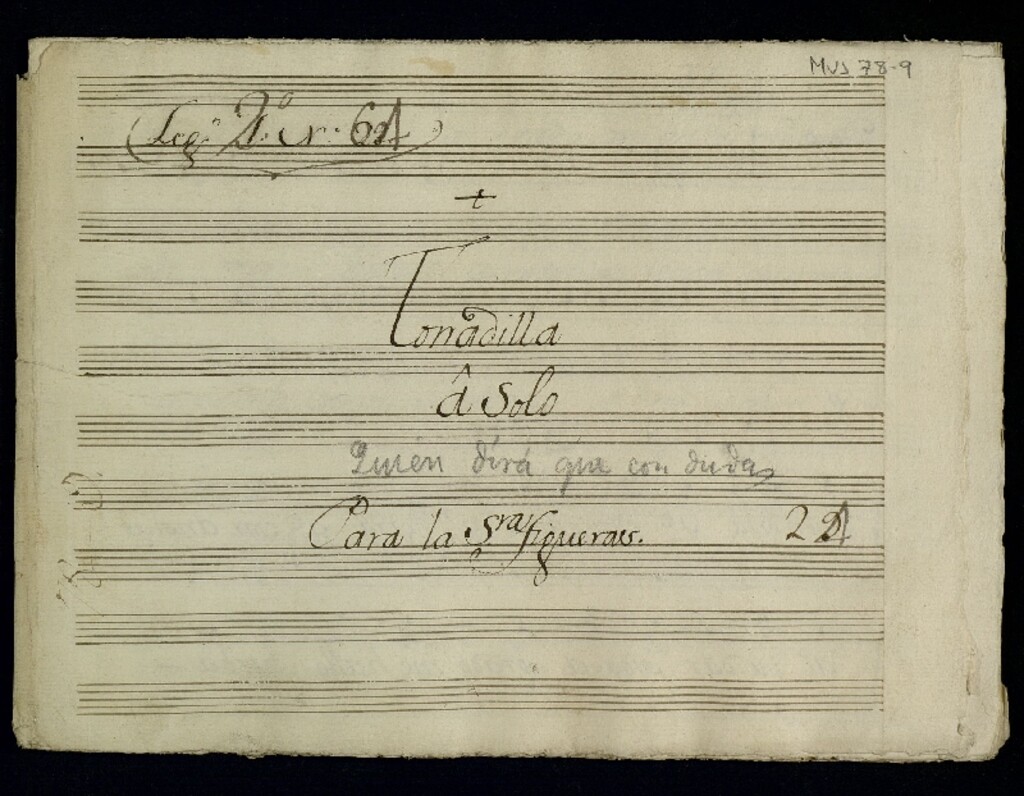 Mus 78-9
Leg.º 2.º N.
+
Tonadilla
â Solo
Quien dirá que con dudas
Para la S.ra Figueras.